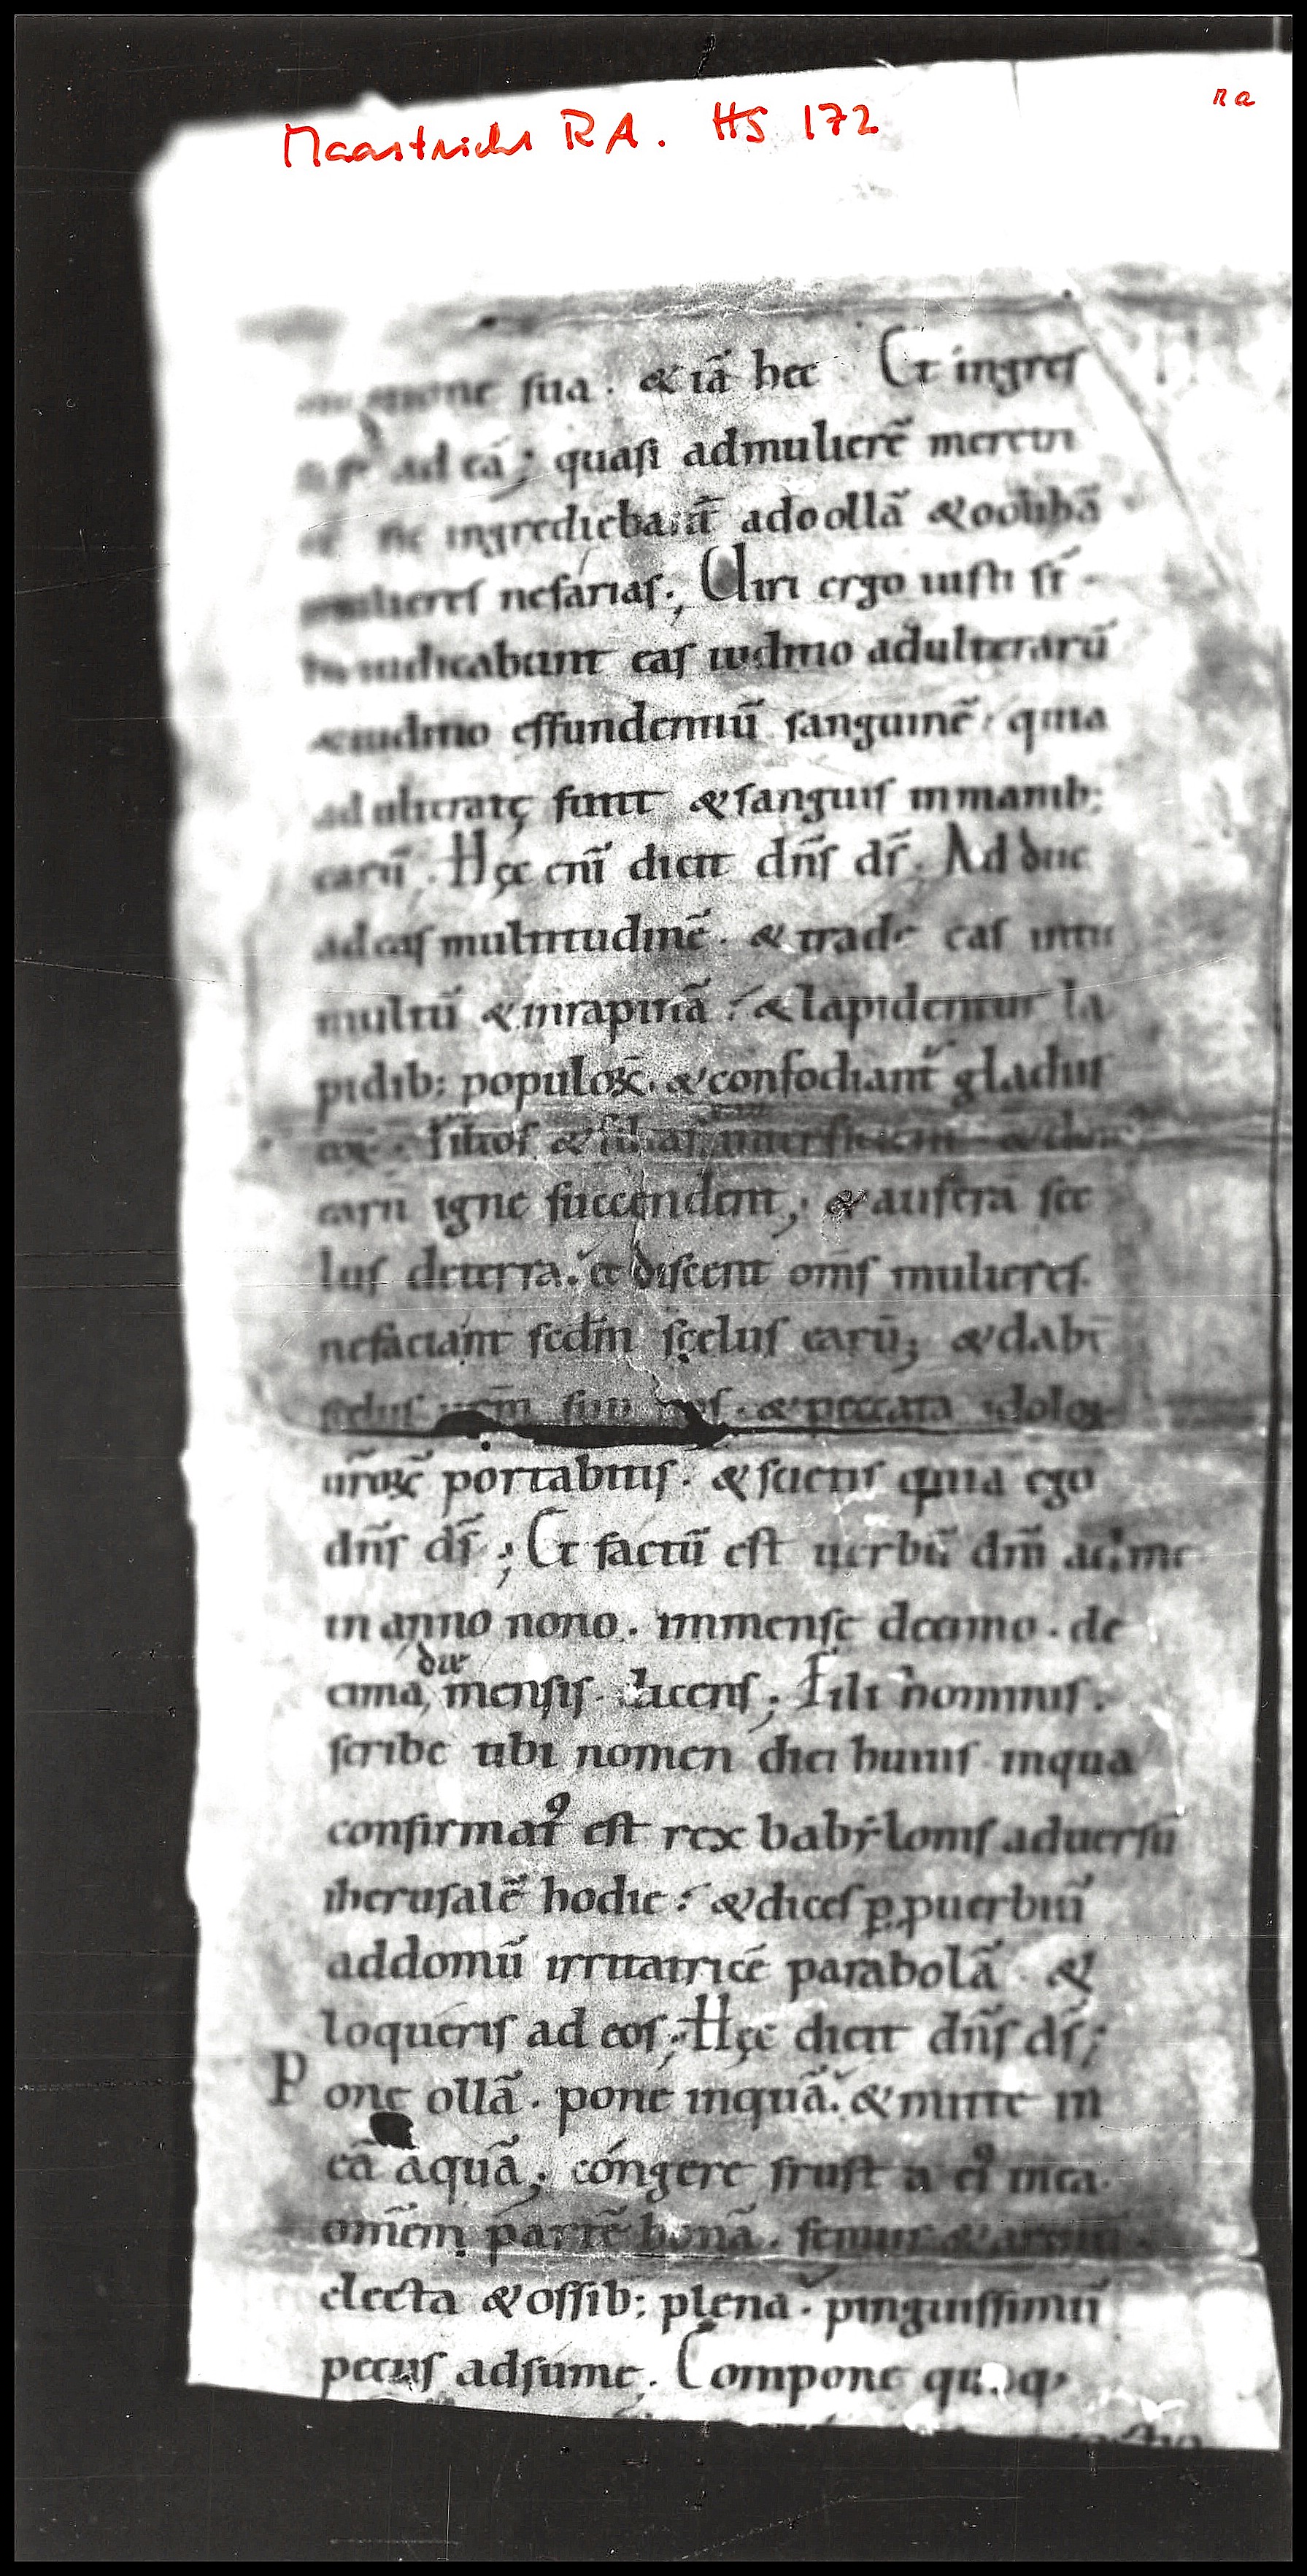 Maastricht RA. HS 172
ra
sua . & iā hec Et ingres
ad eā; quasi admulierē meretri
sic ingrediebant̄ adoollā &oolibā
mulieres nefárias; Uiri ergo iusti st̄
hi iudicabunt eas iudicio adulterarū
&iudicio effundentiū sanguinē quia
adulteratę sunt &sanguis inmanib;
earū . Hęc enī dicit dn̄s ds̄ . Adduc
adeas multitudinē . & trade eas intu
multū &inrapinā & lapidentur la
pidib; populoꝝ . &confodiant̄ gladiis
eoꝝ . filios & filias interficient
earū igne succendent; & auferā sce
lus deterra. et discent om̄s mulieres
nefaciant scdm̄ scelus earū; &dabt̄
scelus ur̄m sup uos . & peccata idoloꝝ
ur̄oꝝ portabitis . &scietis quia ego
dn̄s ds̄ ; Et factū est uerbū dn̄i ad me
in anno nono . inmense decimo . de
die
cima, mensis . dicens; Fili hominis .
scribe tibi nomen diei huius inqua
confirmatꝰ est rex babẏlonis aduersū
iherusalē hodie : &dices ꝑ ꝓuerbiū
addomū irritatricē parabolā &
loqueris ad eos; Hęc dicit dn̄s ds̄;
Pone ollā . pone inquā. &mitte in
eā aquā; cóngere frusta eiꝰ inea .
om̄em partē bonā . femur &armū .
electa &ossib; plena . pinguissimū
pecus adsume . Compone quoq;